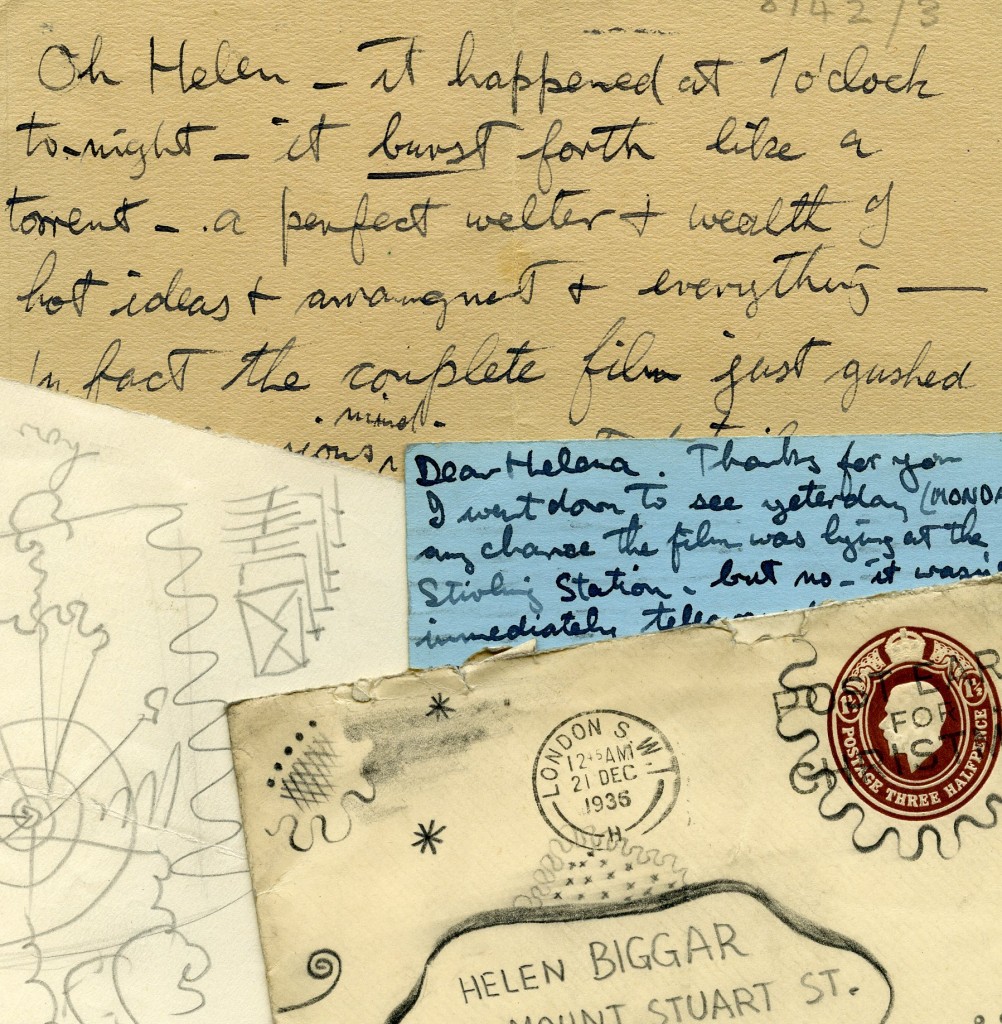 8142/3
Oh Helen – it happened at 7 o'clock
to-night – it burst forth like a
torrent – a perfect welter + wealth of
hot ideas + + everything —
In fact the complete film just gushed
mind
Dear Helena. Thanks for you
I went down to see yeterday (MONDA
any chance the film was lying at the
Stirling Station – but no – it wasn'
immediately
LONDON S.W.1
12 15 AM
21 DEC
1936
H
POSTAGE THREE HALFPENCE
FOR
HELEN BIGGAR
MOUNT STUART ST.